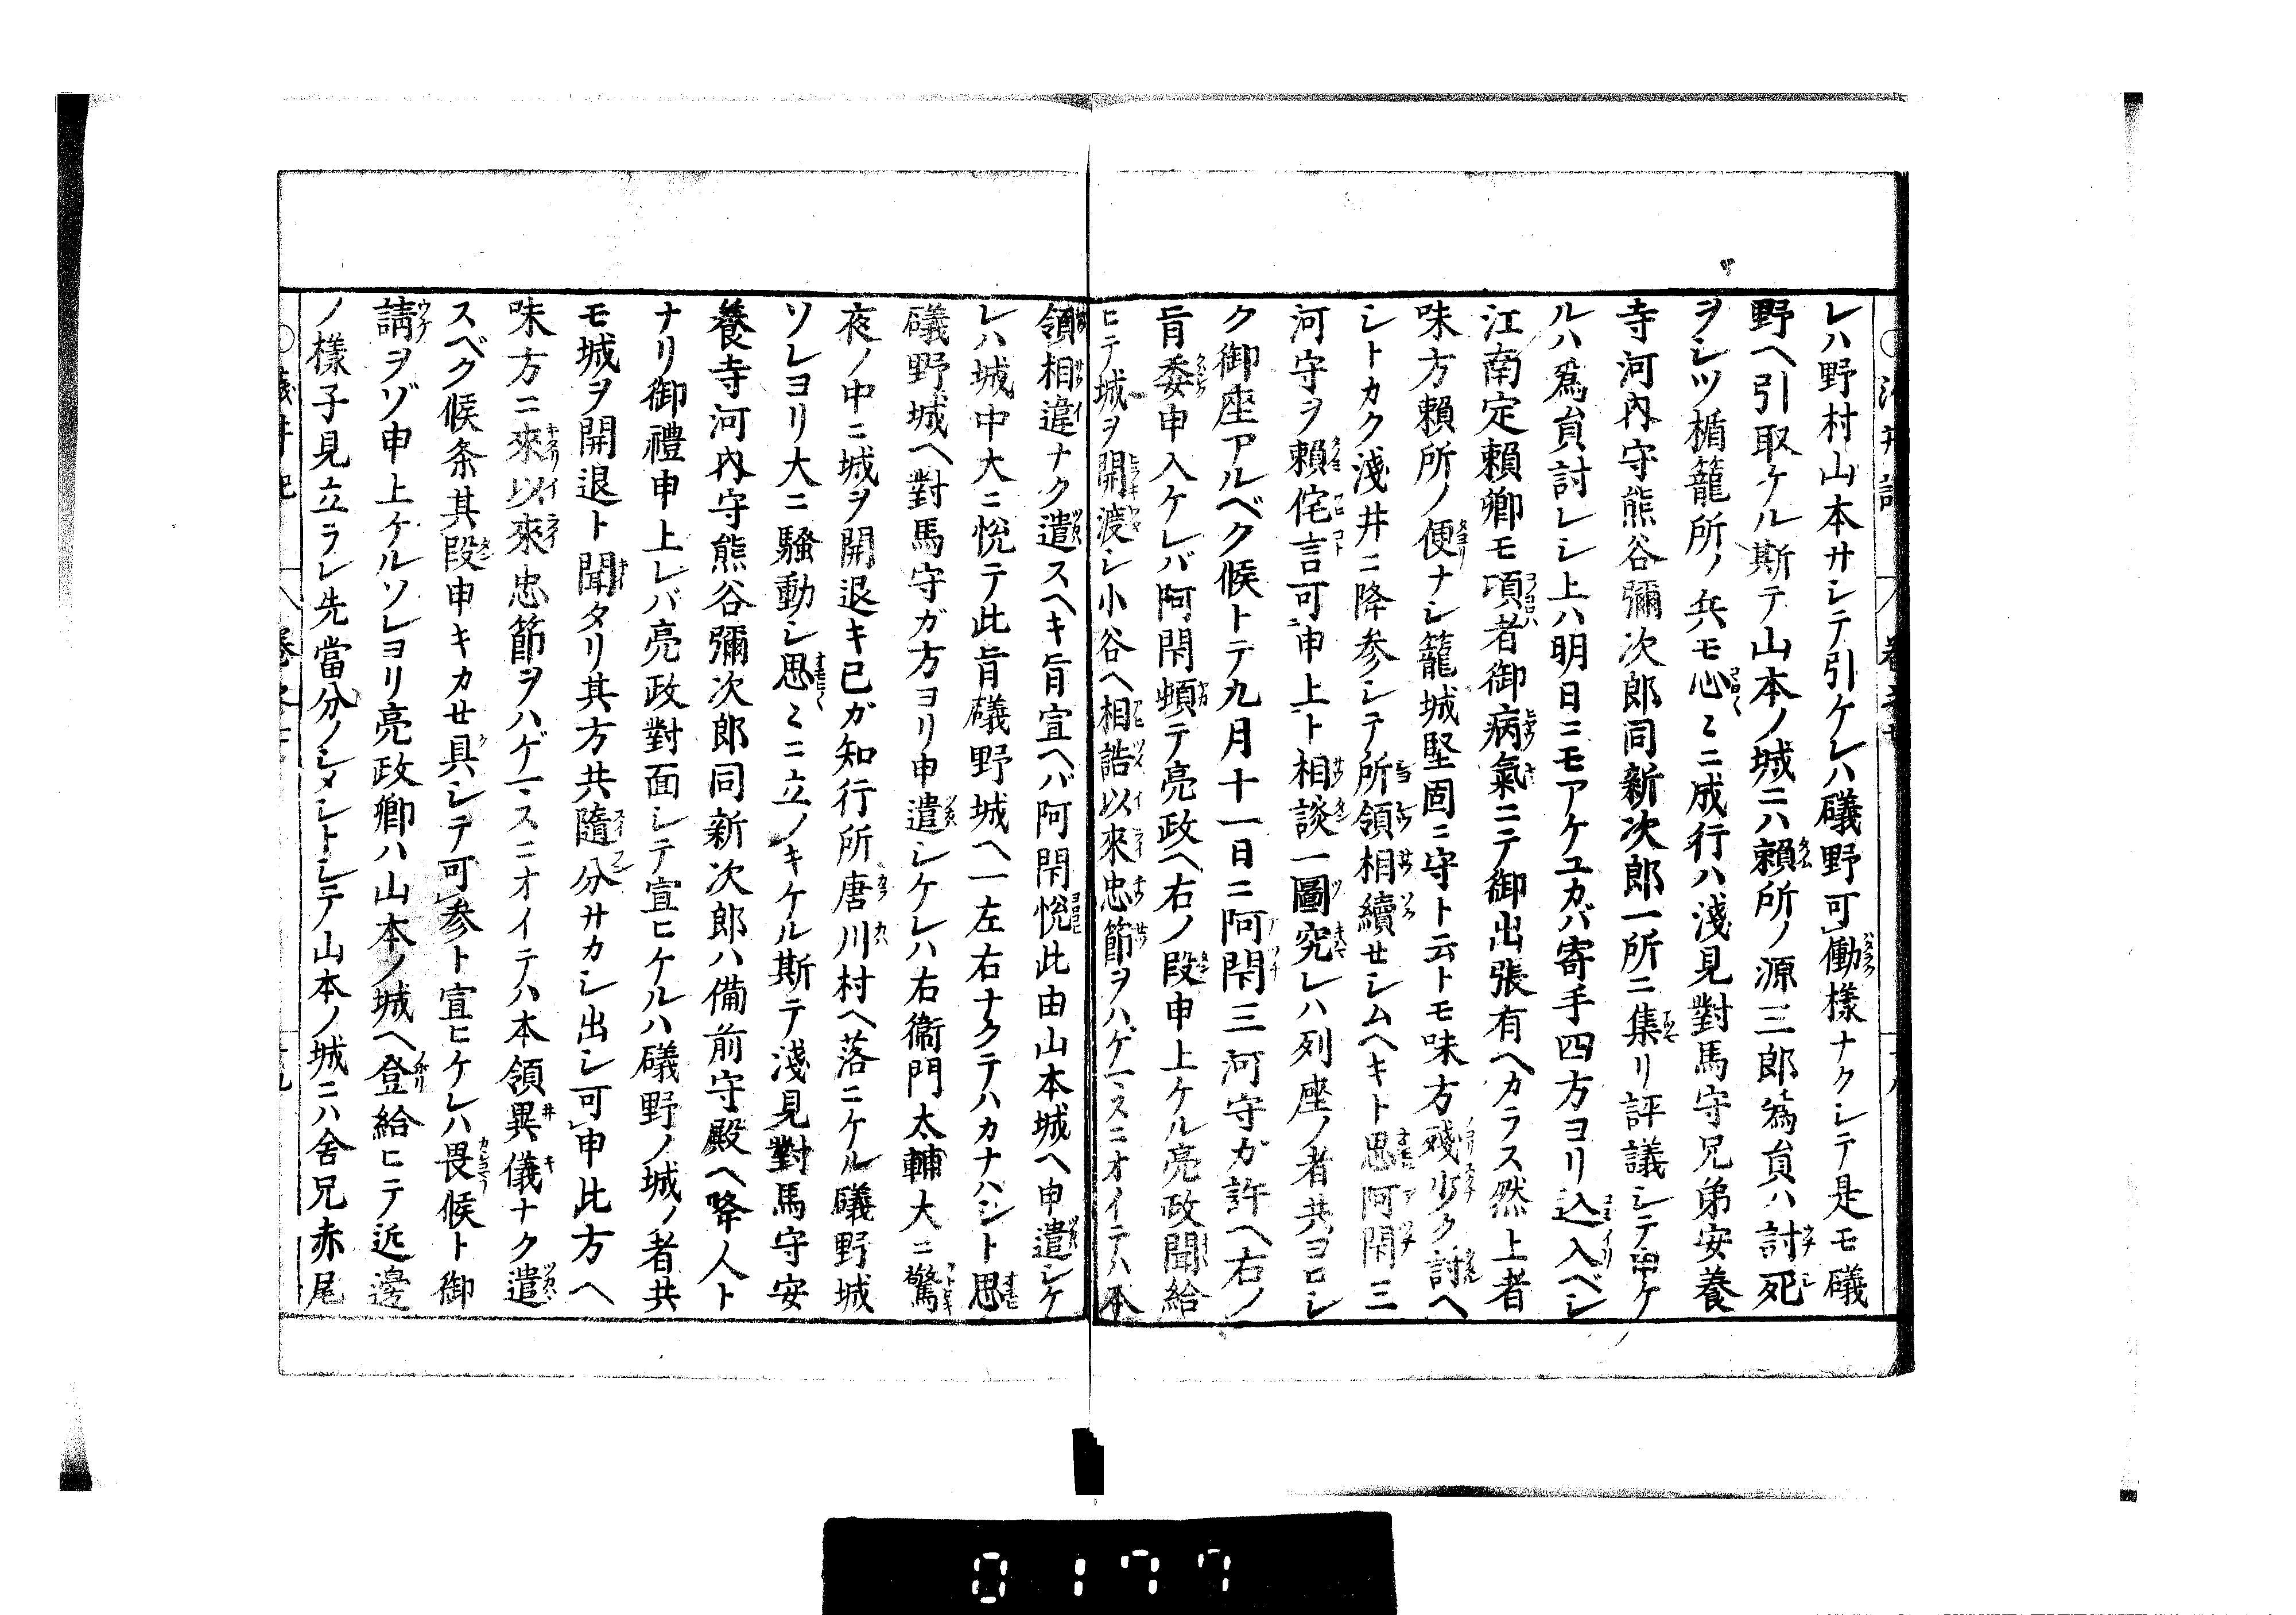 レハ野村山本サシテ引ケレハ礒野可働様ナクシテ是モ礒
野ヘ引取ケル斯テ山本ノ城ニハ頼所ノ源三郎為貟ハ討死
ヲシツ楯籠所ノ兵モ心〻ニ成行ハ淺見對馬守兄弟安養
寺河内守熊谷彌次郎同新次郎一所ニ集リ評議シテ申ケ
ルハ為貟討レシ上ハ明日ニモアケユカバ寄手四方ヨリ込入ベシ
江南定頼卿モ項者御病氣ニテ御出張有ヘカラス然上者
味方頼所ノ便ナシ籠城堅固ニ守ト云トモ味方殘少ク討ヘ
シトカク淺井ニ降参シテ所領相續セシムヘキト思阿閇三
河守ヲ頼侘言可申上ト相談一圖究レハ列座ノ者共ヨロシ
ク御座アルベク候トテ九月十一日ニ阿閇三河守ガ許ヘ右ノ
旨委申入ケレバ阿閇頓テ亮政ヘ右ノ段申上ケル亮政聞給
ヒテ城ヲ開渡シ小谷ヘ相詰以來忠節ヲハゲマスニオイテハ本
領相違ナク遣スヘキ旨宣ヘバ阿閇悦此由山本城ヘ申遣シケ
レハ城中大ニ悦テ此旨礒野城ヘ一左右ナクテハカナハシト思
礒野城ヘ對馬守ガ方ヨリ申遣シケレハ右衛門太輔大ニ驚
夜ノ中ニ城ヲ開退キ已ガ知行所唐川村ヘ落ニケル礒野城
ソレヨリ大ニ騒動シ思〻ニ立ノキケル斯テ淺見對馬守安
養寺河内守熊谷彌次郎同新次郎ハ備前守殿ヘ降人ト
ナリ御禮申上レバ亮政對面シテ宣ヒケルハ礒野ノ城ノ者共
モ城ヲ開退ト聞タリ其方共隨分サカシ出シ可申比方ヘ
味方ニ來以來忠節ヲハゲマスニオイテハ本領異儀ナク遣
スベク候条其段申キカせ具シテ可参ト宣ヒケレハ畏候ト御
請ヲゾ申上ケルソレヨリ亮政卿ハ山本ノ城ヘ登給ヒテ近邊
ノ様子見立ラレ先當分ノシメシトシテ山本ノ城ニハ舍兄赤尾
0177